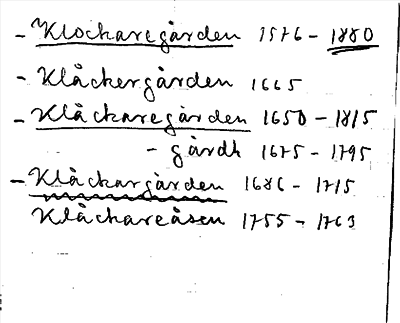 - Klockaregården 1576 - 1880
- Klåckergården 1665
- Klåckaregården 1650 - 1815
- gårdh 1675 - 1795
- Klåckargården 1686 - 1715
Klåckareåsen 1755 - 1763